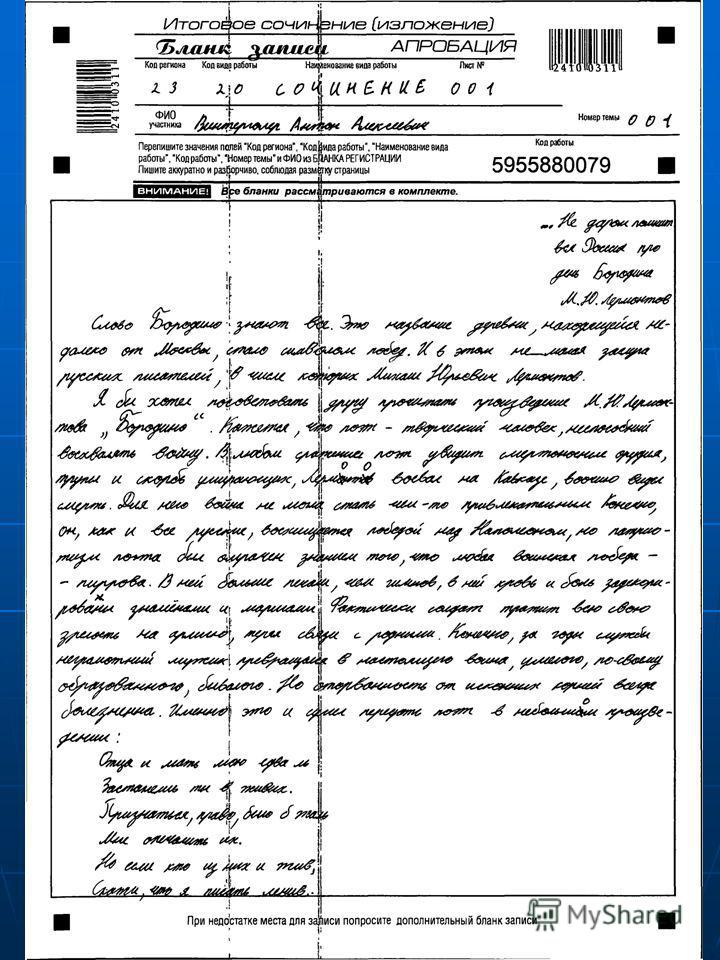 Итоговое сочинение (изложение)
Бланк записи АПРОБАЦИЯ
Код региона Код вида работы Наименование вида работы Лист №
23 20 СОЧИНЕНИЕ 001
2410 0311
2410 0311
ФИО участника Антон Алексеевич Номер темы 001
Перепишите значения полей "Код региона", "Код вида работы", "Наименование вида
работы", "Код работы", "Номер темы" и ФИО из БЛАНКА РЕГИСТРАЦИИ
Пишите аккуратно и разборчиво, соблюдая разметку страницы
Код работы
5955880079
ВНИМАНИЕ! Все бланки рассматриваются в комплекте.
... Не даром помнит
вся Россия про
день Бородина
М.Ю. Лермонтов
Слово Бородино знают все. Это название деревни, находящейся не-
далеко от Москвы, стало символом побед. И в этом не малая заслуга
русских писателей, в числе которых Михаил Юрьевич Лермонтов.
Я бы хотел посоветовать другу прочитать произведение М.Ю. Лермон-
това „Бородино". Кажется, что поэт - творческий человек, неспособный
восхвалять войну. В любом сражении поэт увидит смертоносные орудия,
трупы и скорбь умирающих, Лермонтов воевал на Кавказе, воочию видел
смерть. Для него война не могла стать чем-то привлекательным Конечно,
он, как и все русские, восхищается победой над Наполеоном, но патрио-
тизм поэта был омрачен знанием того, что любая воинская победа -
- пиррова. В ней больше печали, чем гимнов, в ней кровь и боль задекори-
рованы знамёнами и маршами. Фактически солдат тратит всю свою
зрелость на армию, теряя связи с родными. Конечно, за годы службы
неграмотный мужик превращался в настоящего воина, умелого, по-своему
образованного, бывалого. Но оторванность от исконних корней всегда
болезненна. Именно это и сумел передать поэт в небольшом произве-
дении:
Отца и мать мою едва ль
Застанешь ты в живых.
Признаться, право, было б жаль
Мне опечалить их.
Но если кто из них и жив,
Скажи, что я писать ленив..
При недостатке места для записи попросите дополнительный бланк записи
MyShared